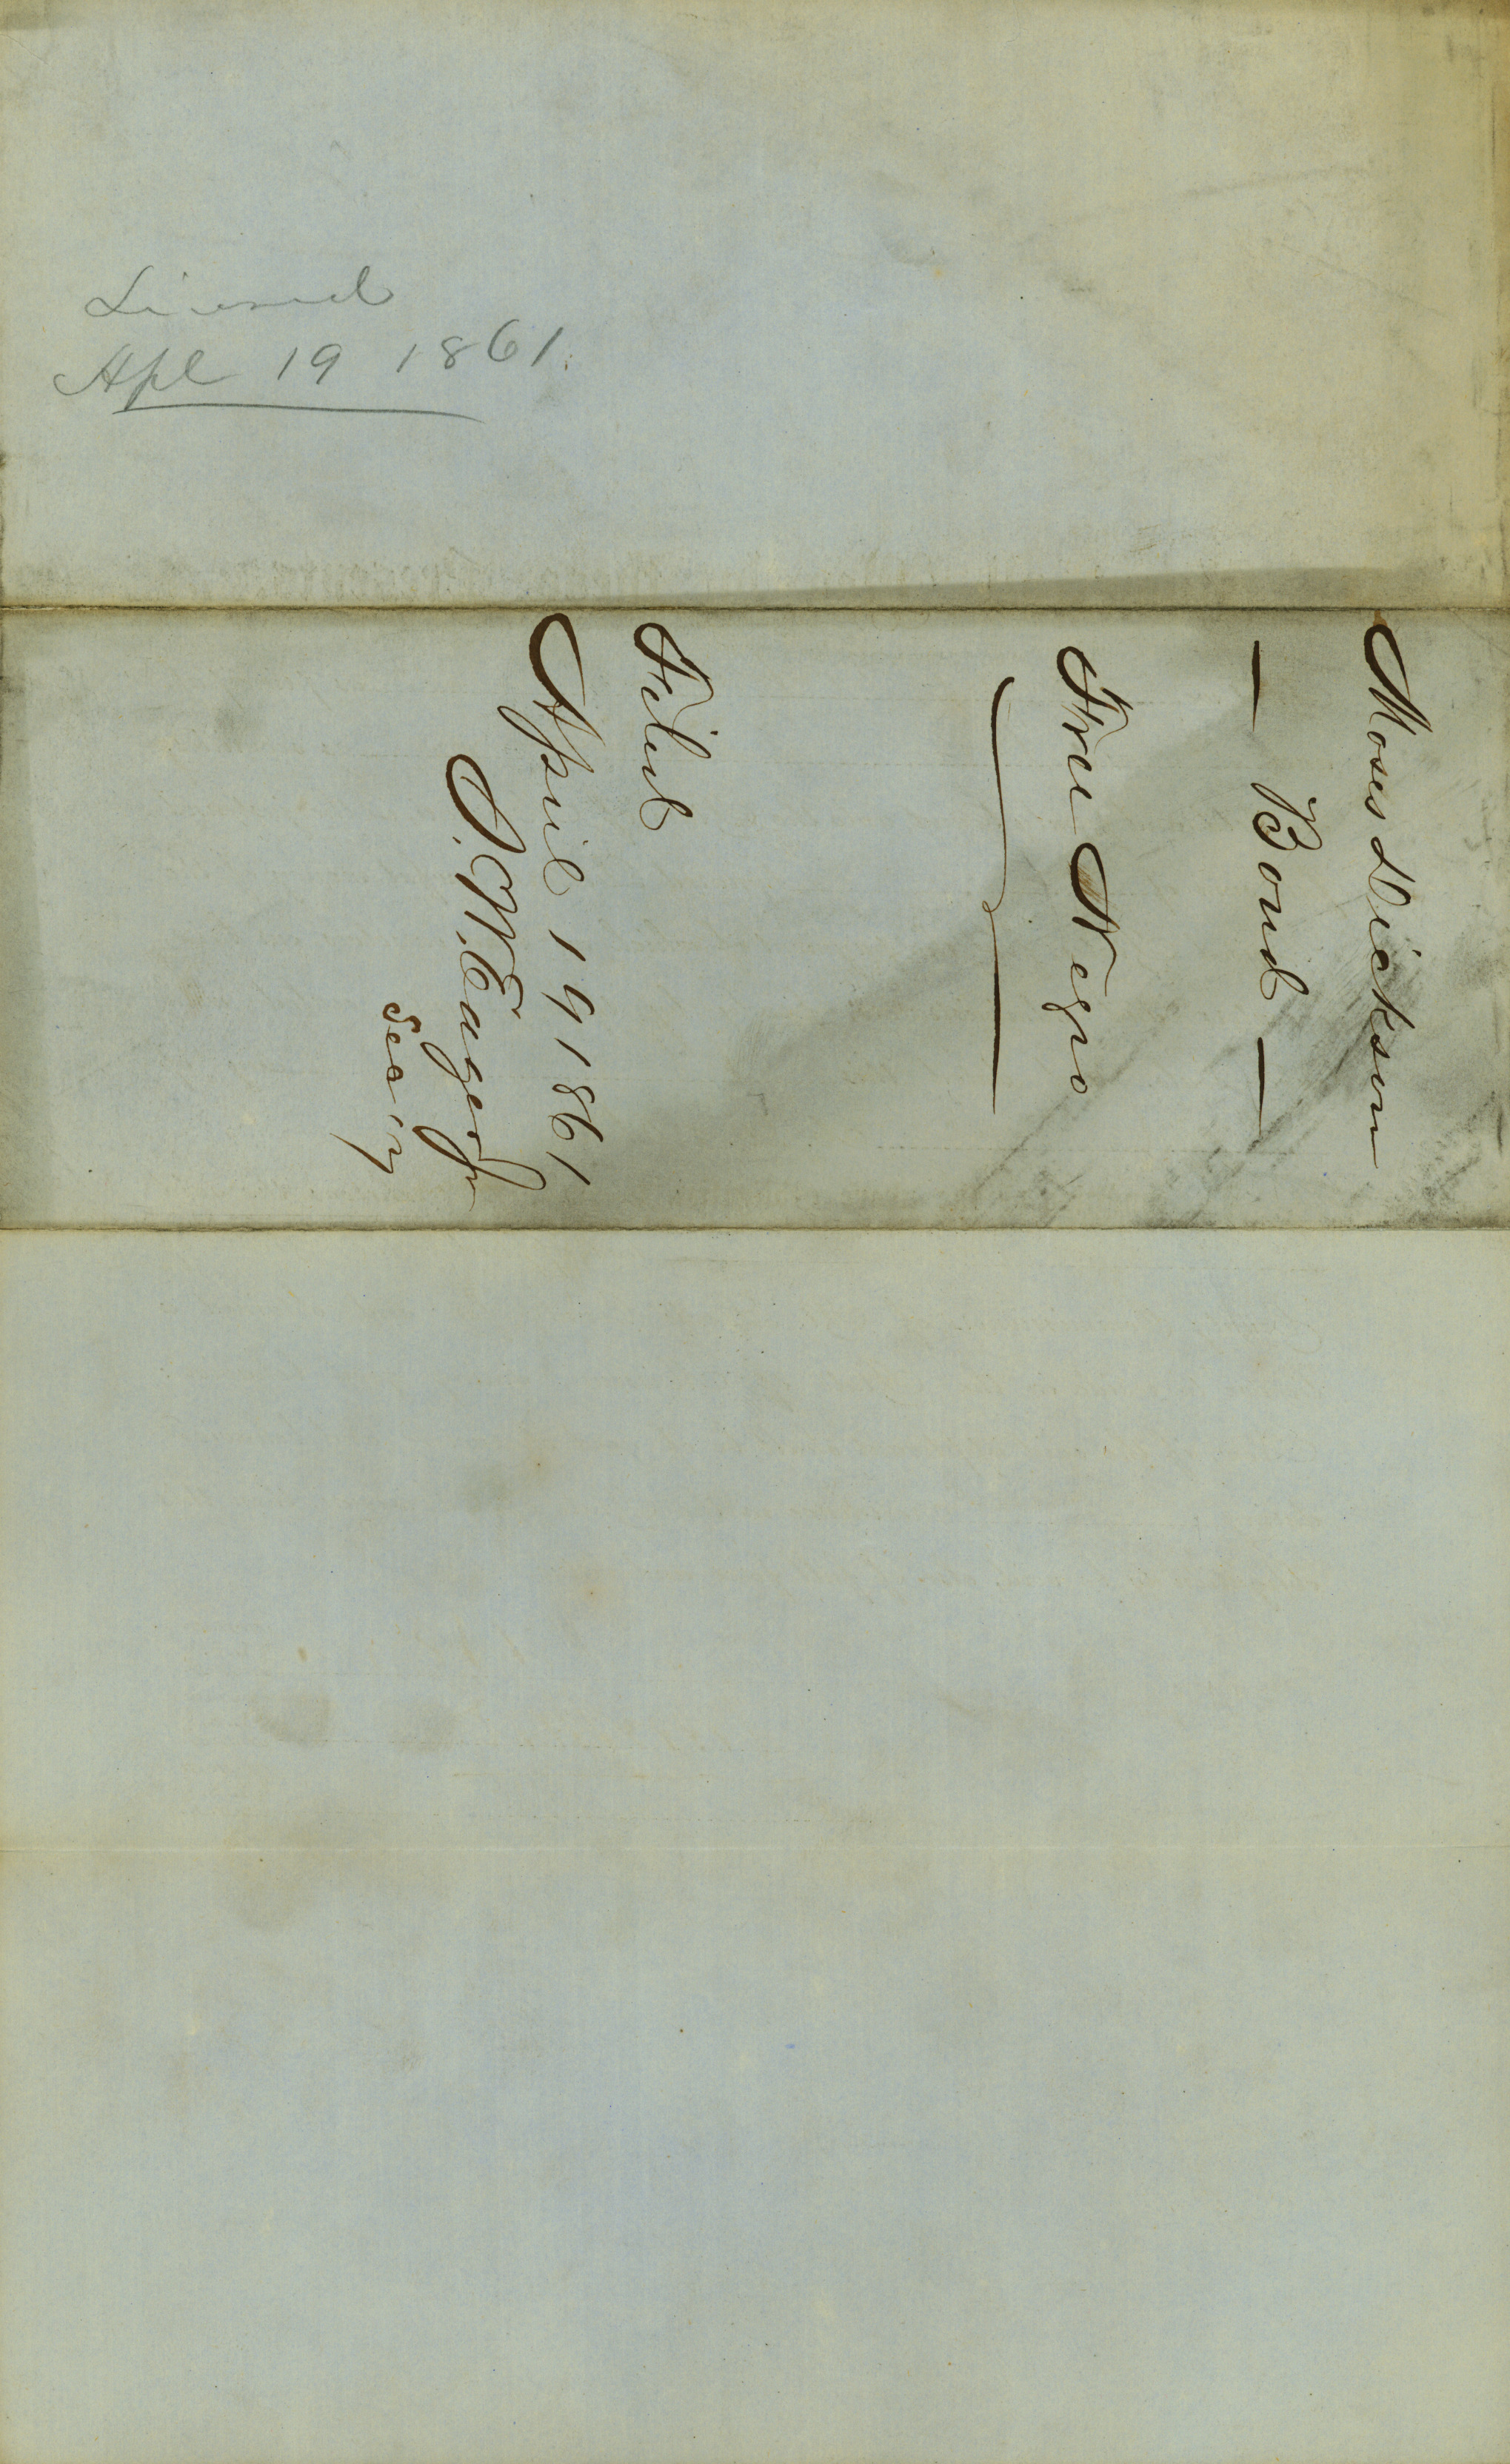 Licensed
Apl 19 1861.
Moses Dickson
— Bond —
Free Negro
Filed
April 19 1861
Sec'ty